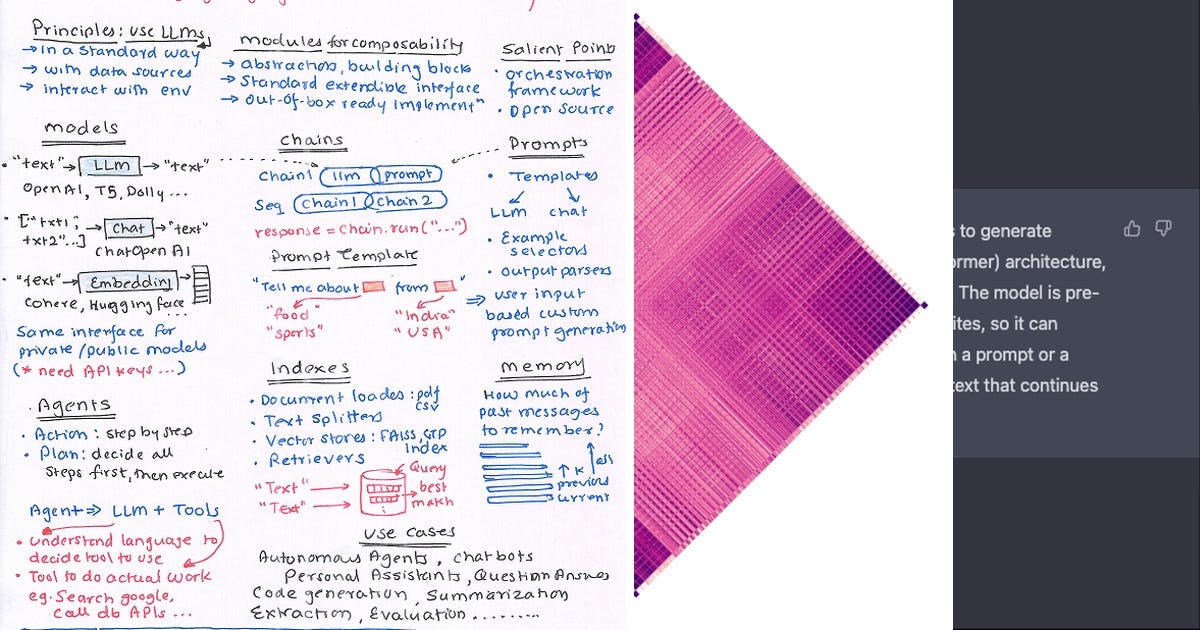 Principles: use LLMs
→ in a standard way
→ with data sources
→ interact with env
modules for composability
→ abstractions, building blocks
→ Standard extendible interface
→ out-of-box ready implementn
Salient Points
• orchestration
framework
• open source
models
• "text" → LLM → "text"
OpenAI, T5, Dolly ...
• ["txt1", → Chat → "text"
txt2"...]
ChatOpen AI
• "text" → Embedding →
Cohere, Hugging face
...
Same interface for
private/public models
(* need API keys ...)
Chains
Chain1 llm prompt
Seq Chain1 Chain 2
response = Chain.run("...")
Prompt Template
"Tell me about from "
"food" "India"
"sports" "USA"
Prompts
• Templates
LLM chat
• Example
selectors
• output parsers
⇒ user input
based custom
prompt generation
Agents
• Action: step by step
• Plan: decide all
steps first, then execute
Agent ⇒ LLM + Tools
• understand language to
decide tool to use
• Tool to do actual work
eg. Search google,
call db APIs ...
Indexes
• Document loades: pdf
csv
• Text splitters
• Vector stores: FAISS,
index
• Retrievers
Query
"Text" → best
"Text" → match
memory
How much of
past messages
to remember?
↑ K ↑ all
previous
current
use cases
Autonomous Agents, chatbots
Personal Assistants, Question Answer
Code generation, Summarization
Extraction, Evaluation.........
to generate
rmer) architecture,
The model is pre-
ites, so it can
a prompt or a
text that continues